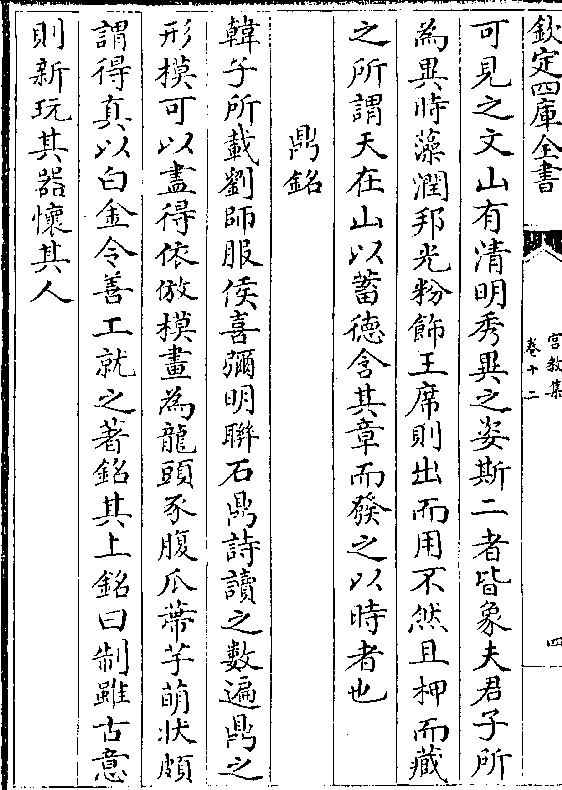 欽定四庫全書
宫教集
卷十二
四
可見之文山有清明秀異之姿斯二者皆象夫君子所
為異時藻潤邦光粉飾王席則出而用不然且柙而藏
之所謂天在山以蓄德含其章而發之以時者也
鼎銘
韓子所載劉師服侯喜彌明聯石鼎詩讀之數遍鼎之
形模可以盡得依倣模畫為龍頭豕腹瓜蔕芋萌狀頗
謂得真以白金令善工就之著銘其上銘曰制雖古意
則新玩其器懷其人